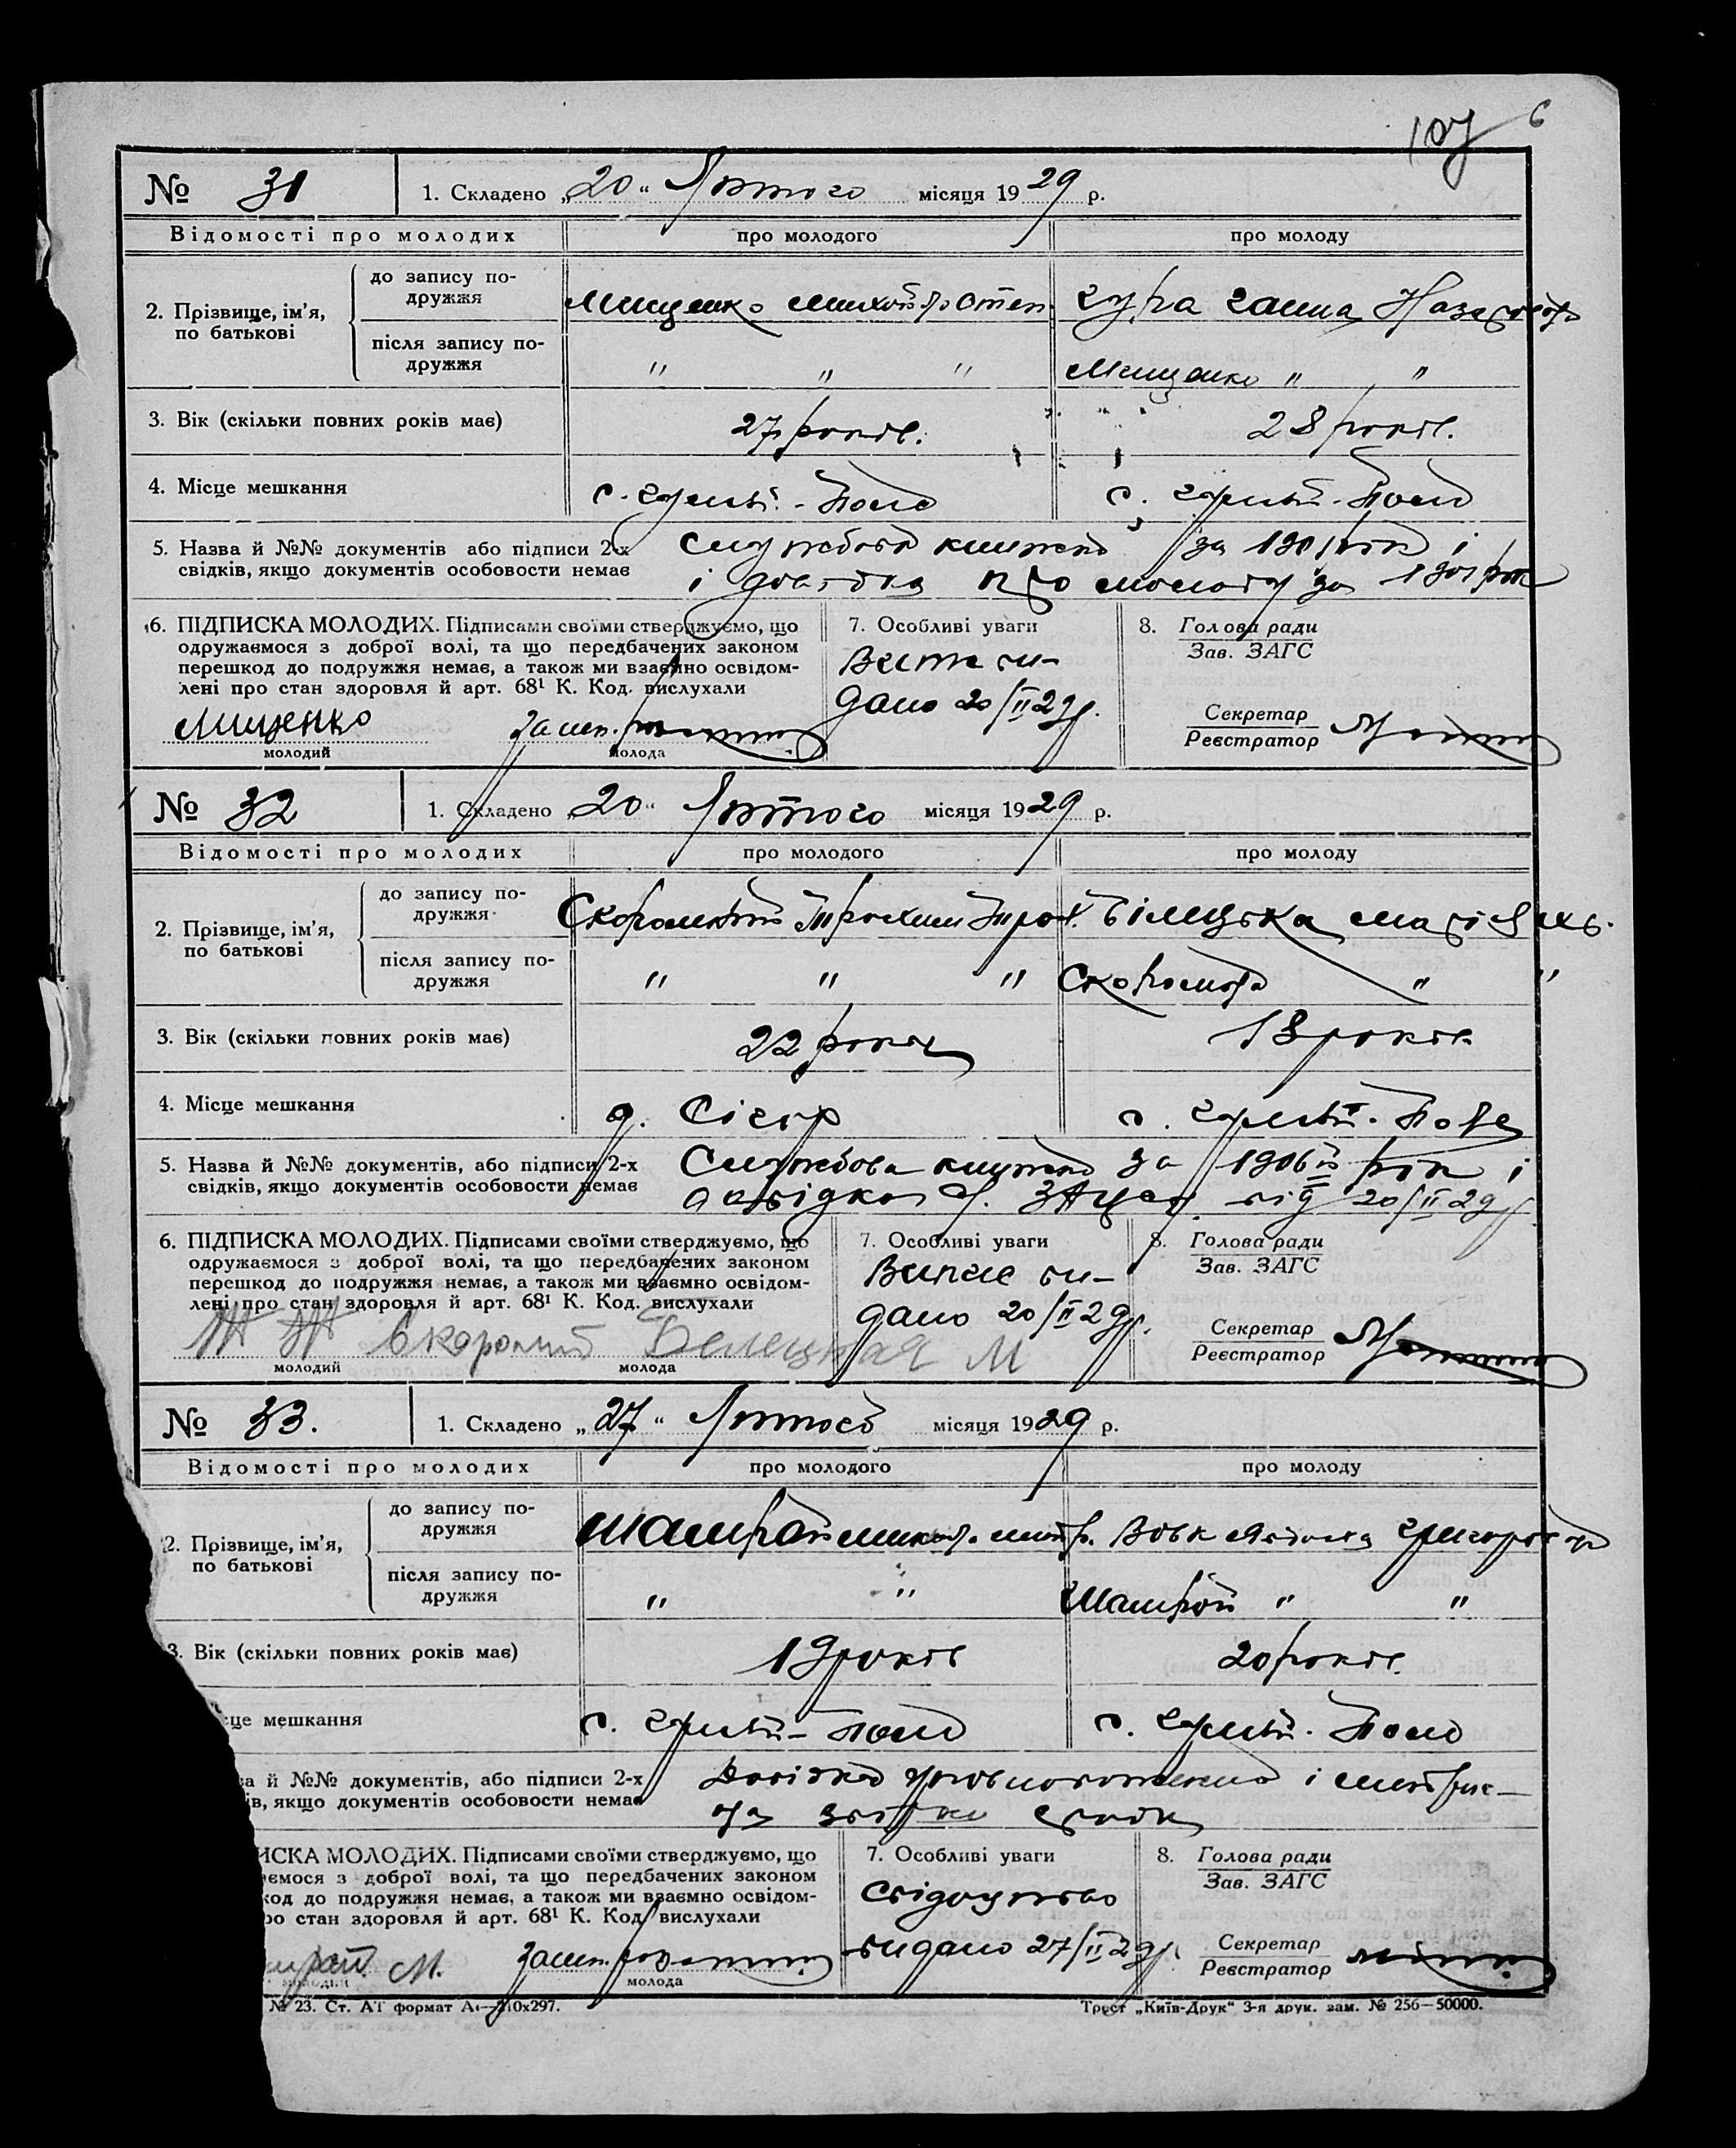 107 6
№ 31 1. Складено „20“ Лютого місяця 1929 р.
Відомості про молодих про молодого про молоду
2. Прізвище, ім'я, по батькові
до запису подружжя Мищенко Гура Ганна
після запису подружжя " " " Мищенко " "
3. Вік (скільки повних років має) 27 років. 28 років.
4. Місце мешкання с. Гуляй-Поле с. Гуляй-Поле
5. Назва й №№ документів або підписи 2-х Службова книжка за рік і
свідків, якщо документів особовости немає і довідка про молоду за 1901 рік
6. ПІДПИСКА МОЛОДИХ. Підписами своїми стверджуємо, що
одружаємося з доброї волі, та що передбачених законом
перешкод до подружжя немає, а також ми взаємно освідом-
лені про стан здоровля й арт. 68¹ К. Код. вислухали
Мищенко
молодий молода
7. Особливі уваги
Витяг ви-
дано 20/II 29р.
8. Голова ради
Зав. ЗАГС
Секретар
Реєстратор
№ 32 1. Складено „20“ Лютого місяця 1929 р.
Відомості про молодих про молодого про молоду
2. Прізвище, ім'я, по батькові
до запису подружжя Скоромний Трохим Троф. Білецька
після запису подружжя " " " "  "
3. Вік (скільки повних років має) 22 роки 18 років
4. Місце мешкання с. Гуляй-Поле
5. Назва й №№ документів, або підписи 2-х Службова книжка за 1906й рік і
свідків, якщо документів особовости немає довідка від 20/II 29р.
6. ПІДПИСКА МОЛОДИХ. Підписами своїми стверджуємо, що
одружаємося з доброї волі, та що передбачених законом
перешкод до подружжя немає, а також ми взаємно освідом-
лені про стан здоровля й арт. 68¹ К. Код. вислухали
Скоромний Белецкая М
молодий молода
7. Особливі уваги
Випис ви-
дано 20/II 29р.
8. Голова ради
Зав. ЗАГС
Секретар
Реєстратор
№ 33. 1. Складено „27“ Лютого місяця 1929 р.
Відомості про молодих про молодого про молоду
2. Прізвище, ім'я, по батькові
до запису подружжя Шамрай Вовк
після запису подружжя " " Шамрай " "
3. Вік (скільки повних років має) 19 років 20 років.
це мешкання с. Гуляй-Поле с. Гуляй-Поле
а й №№ документів, або підписи 2-х Довідка і
ів, якщо документів особовости немає
ИСКА МОЛОДИХ. Підписами своїми стверджуємо, що
ємося з доброї волі, та що передбачених законом
код до подружжя немає, а також ми взаємно освідом-
ро стан здоровля й арт. 68¹ К. Код. вислухали
рай М.
молодий молода
7. Особливі уваги
Свідоцтво
видано 27/II 29р.
8. Голова ради
Зав. ЗАГС
Секретар
Реєстратор
№ 23. Ст. АТ формат А₄—210х297. Трест „Київ-Друк“ 3-я друк. зам. № 256—50000.